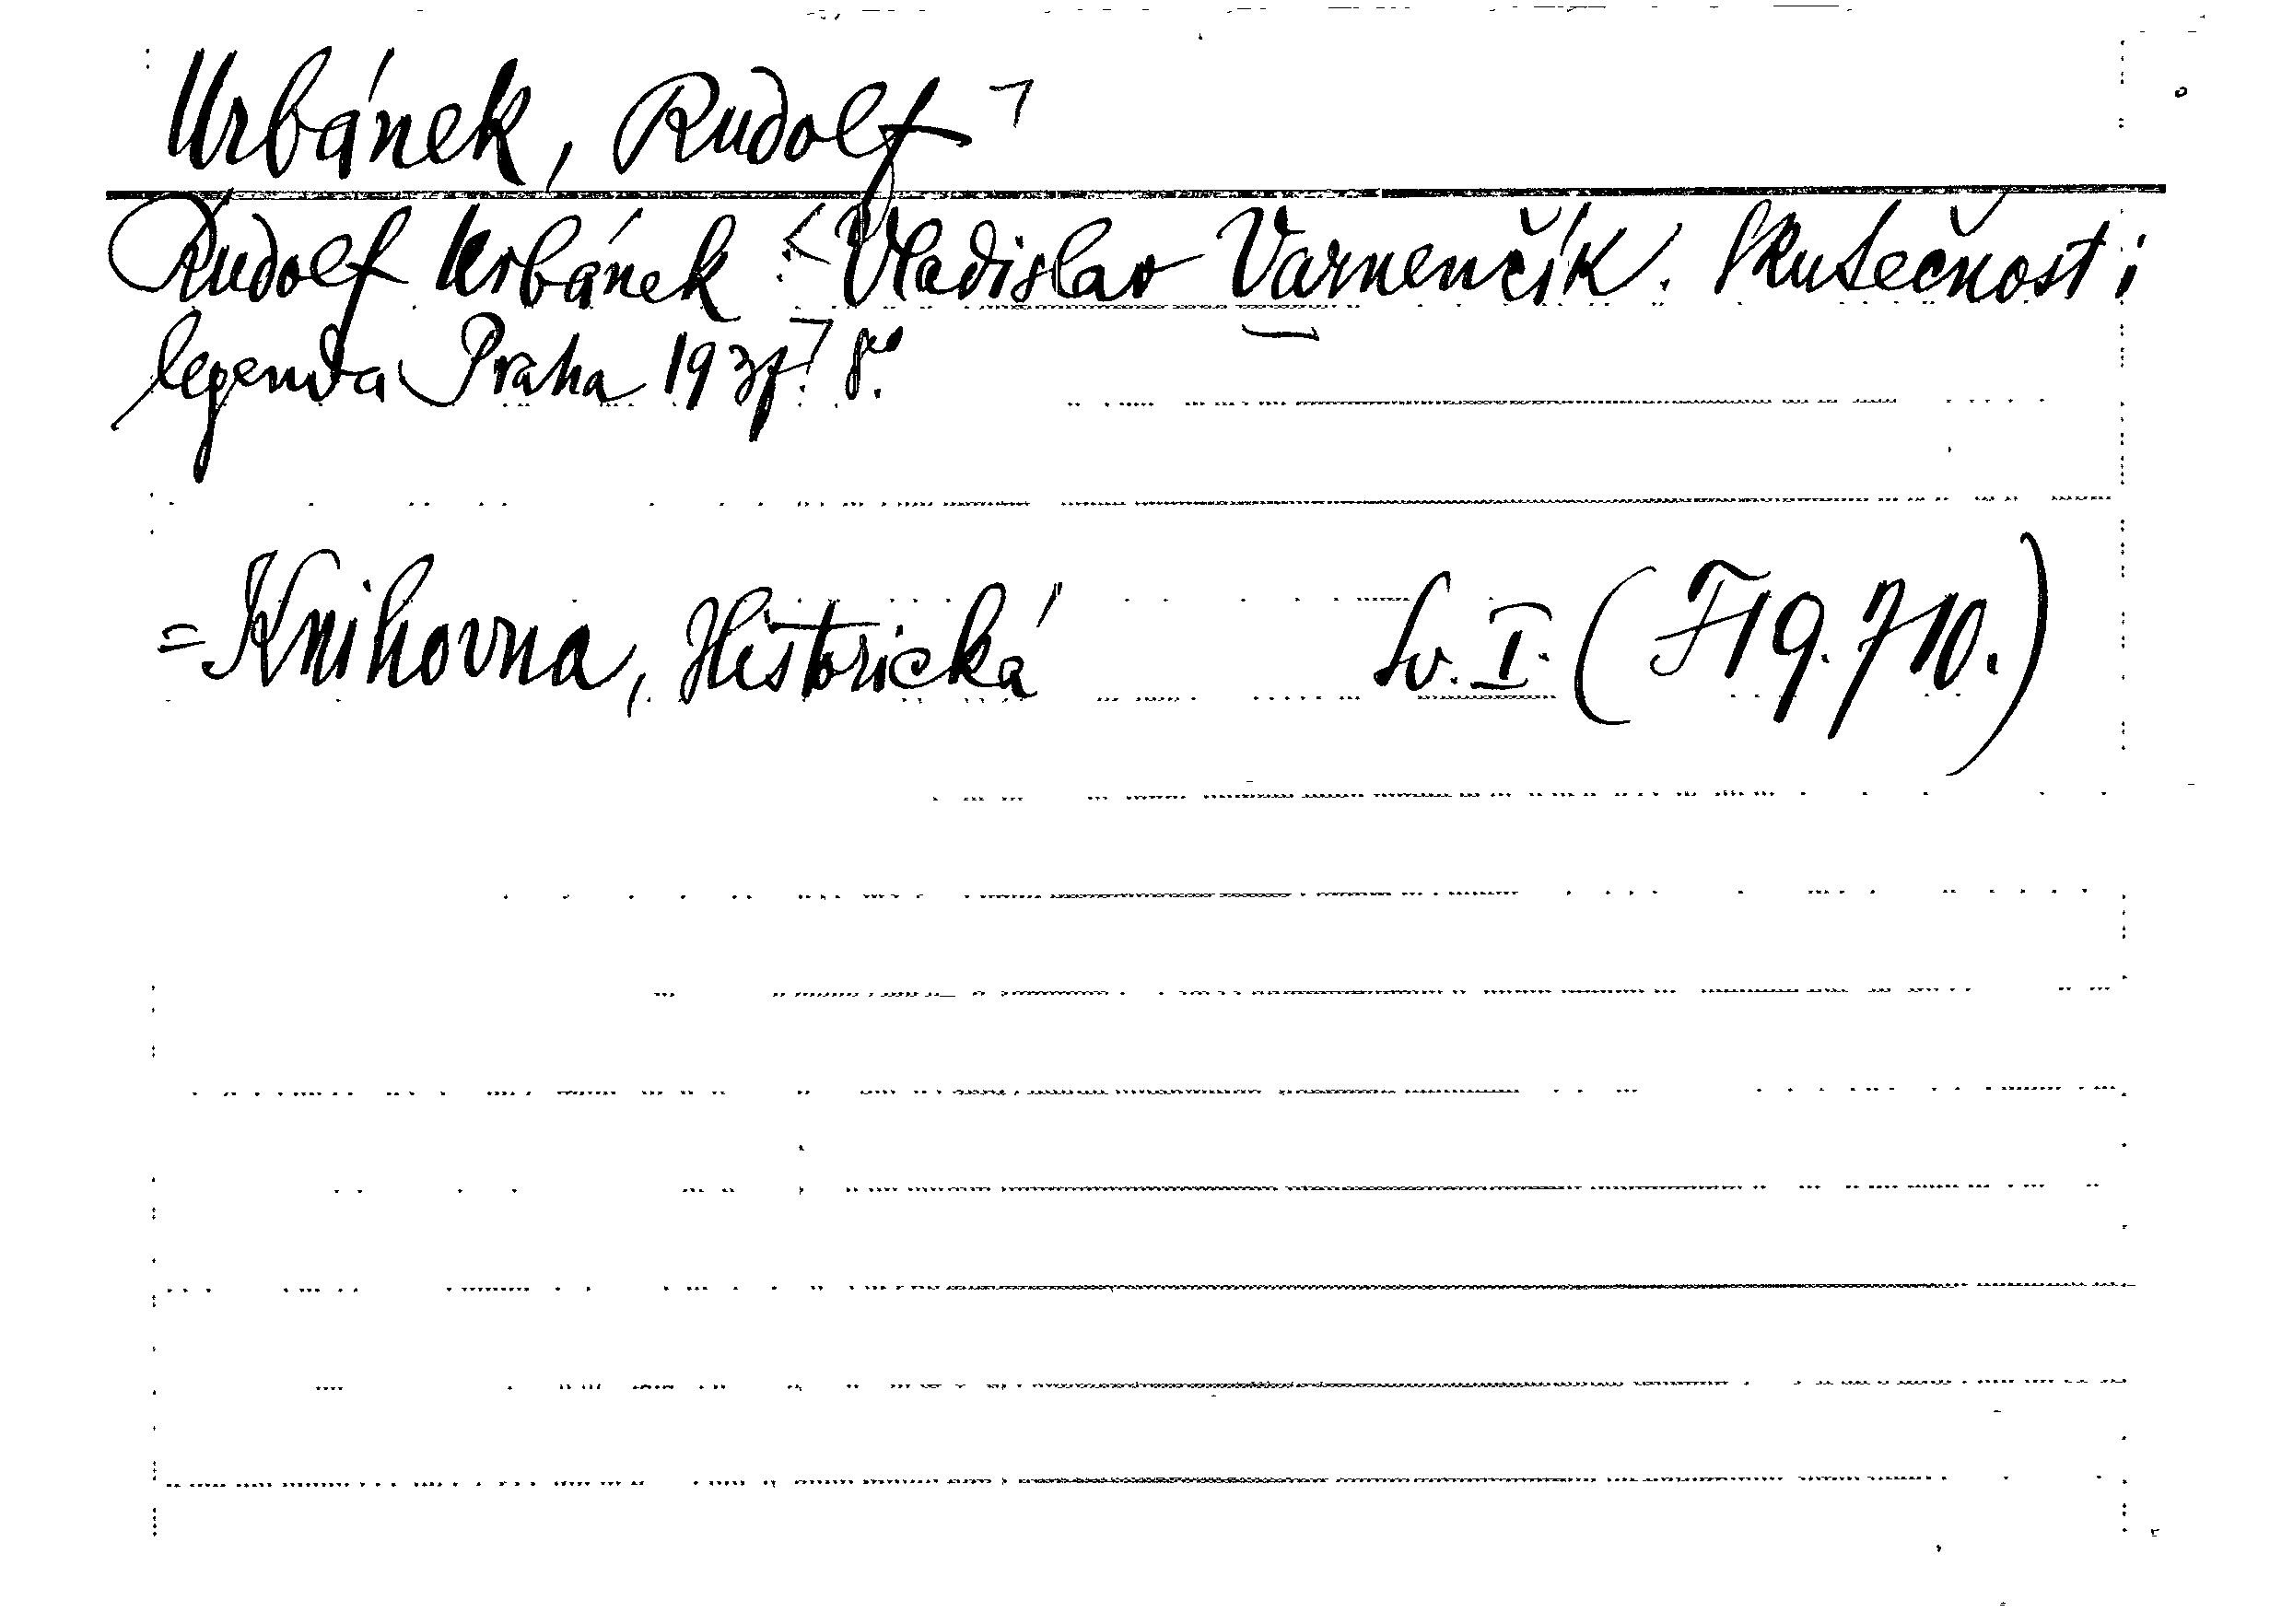 Urbánek, Rudolf
Rudolf Urbánek: Vladislav Varnenčík. Skutečnost i
legenda Praha 1937. 8º.
= Knihovna, Historická Sv. I. (F 19.710.)